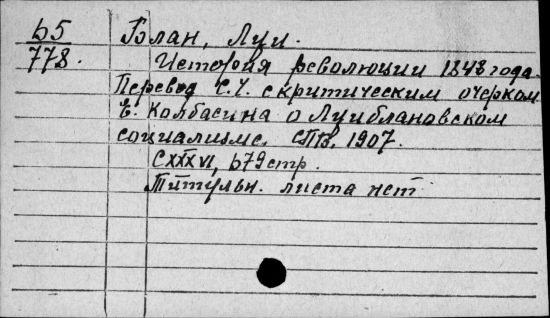 Б5
778.
Блан, Луи.
История революции 1848 года.
Перевод С.Ч. с критическим очерком
Е. Колбасина о Луиблановском
социализме. СПБ, 1907.
CXXXVI, 679 стр.
Титульн. листа нет